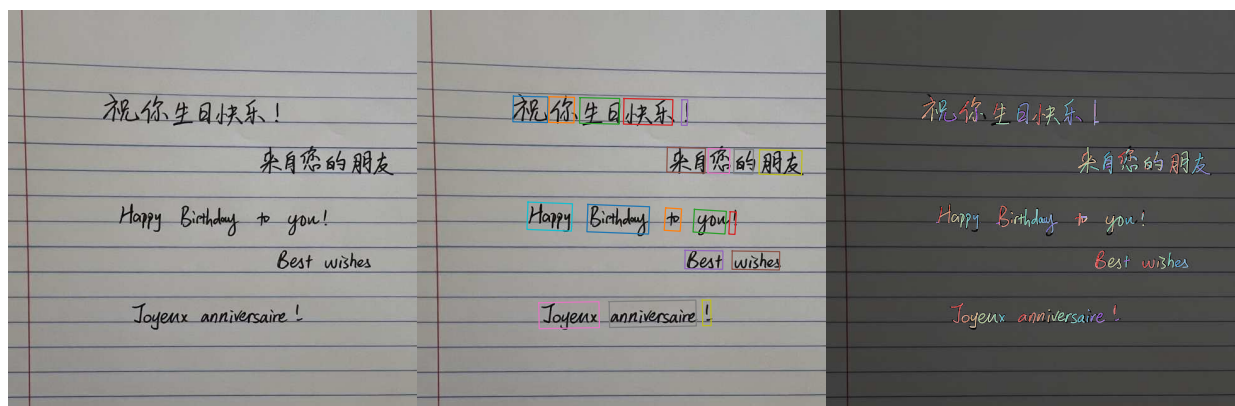 祝你生日快乐!
来自您的朋友
Happy Birthday to you!
Best wishes
Joyeux anniversaire!
祝你生日快乐!
来自您的朋友
Happy Birthday to you!
Best wishes
Joyeux anniversaire!
祝你生日快乐!
来自您的朋友
Happy Birthday to you!
Best wishes
Joyeux anniversaire!